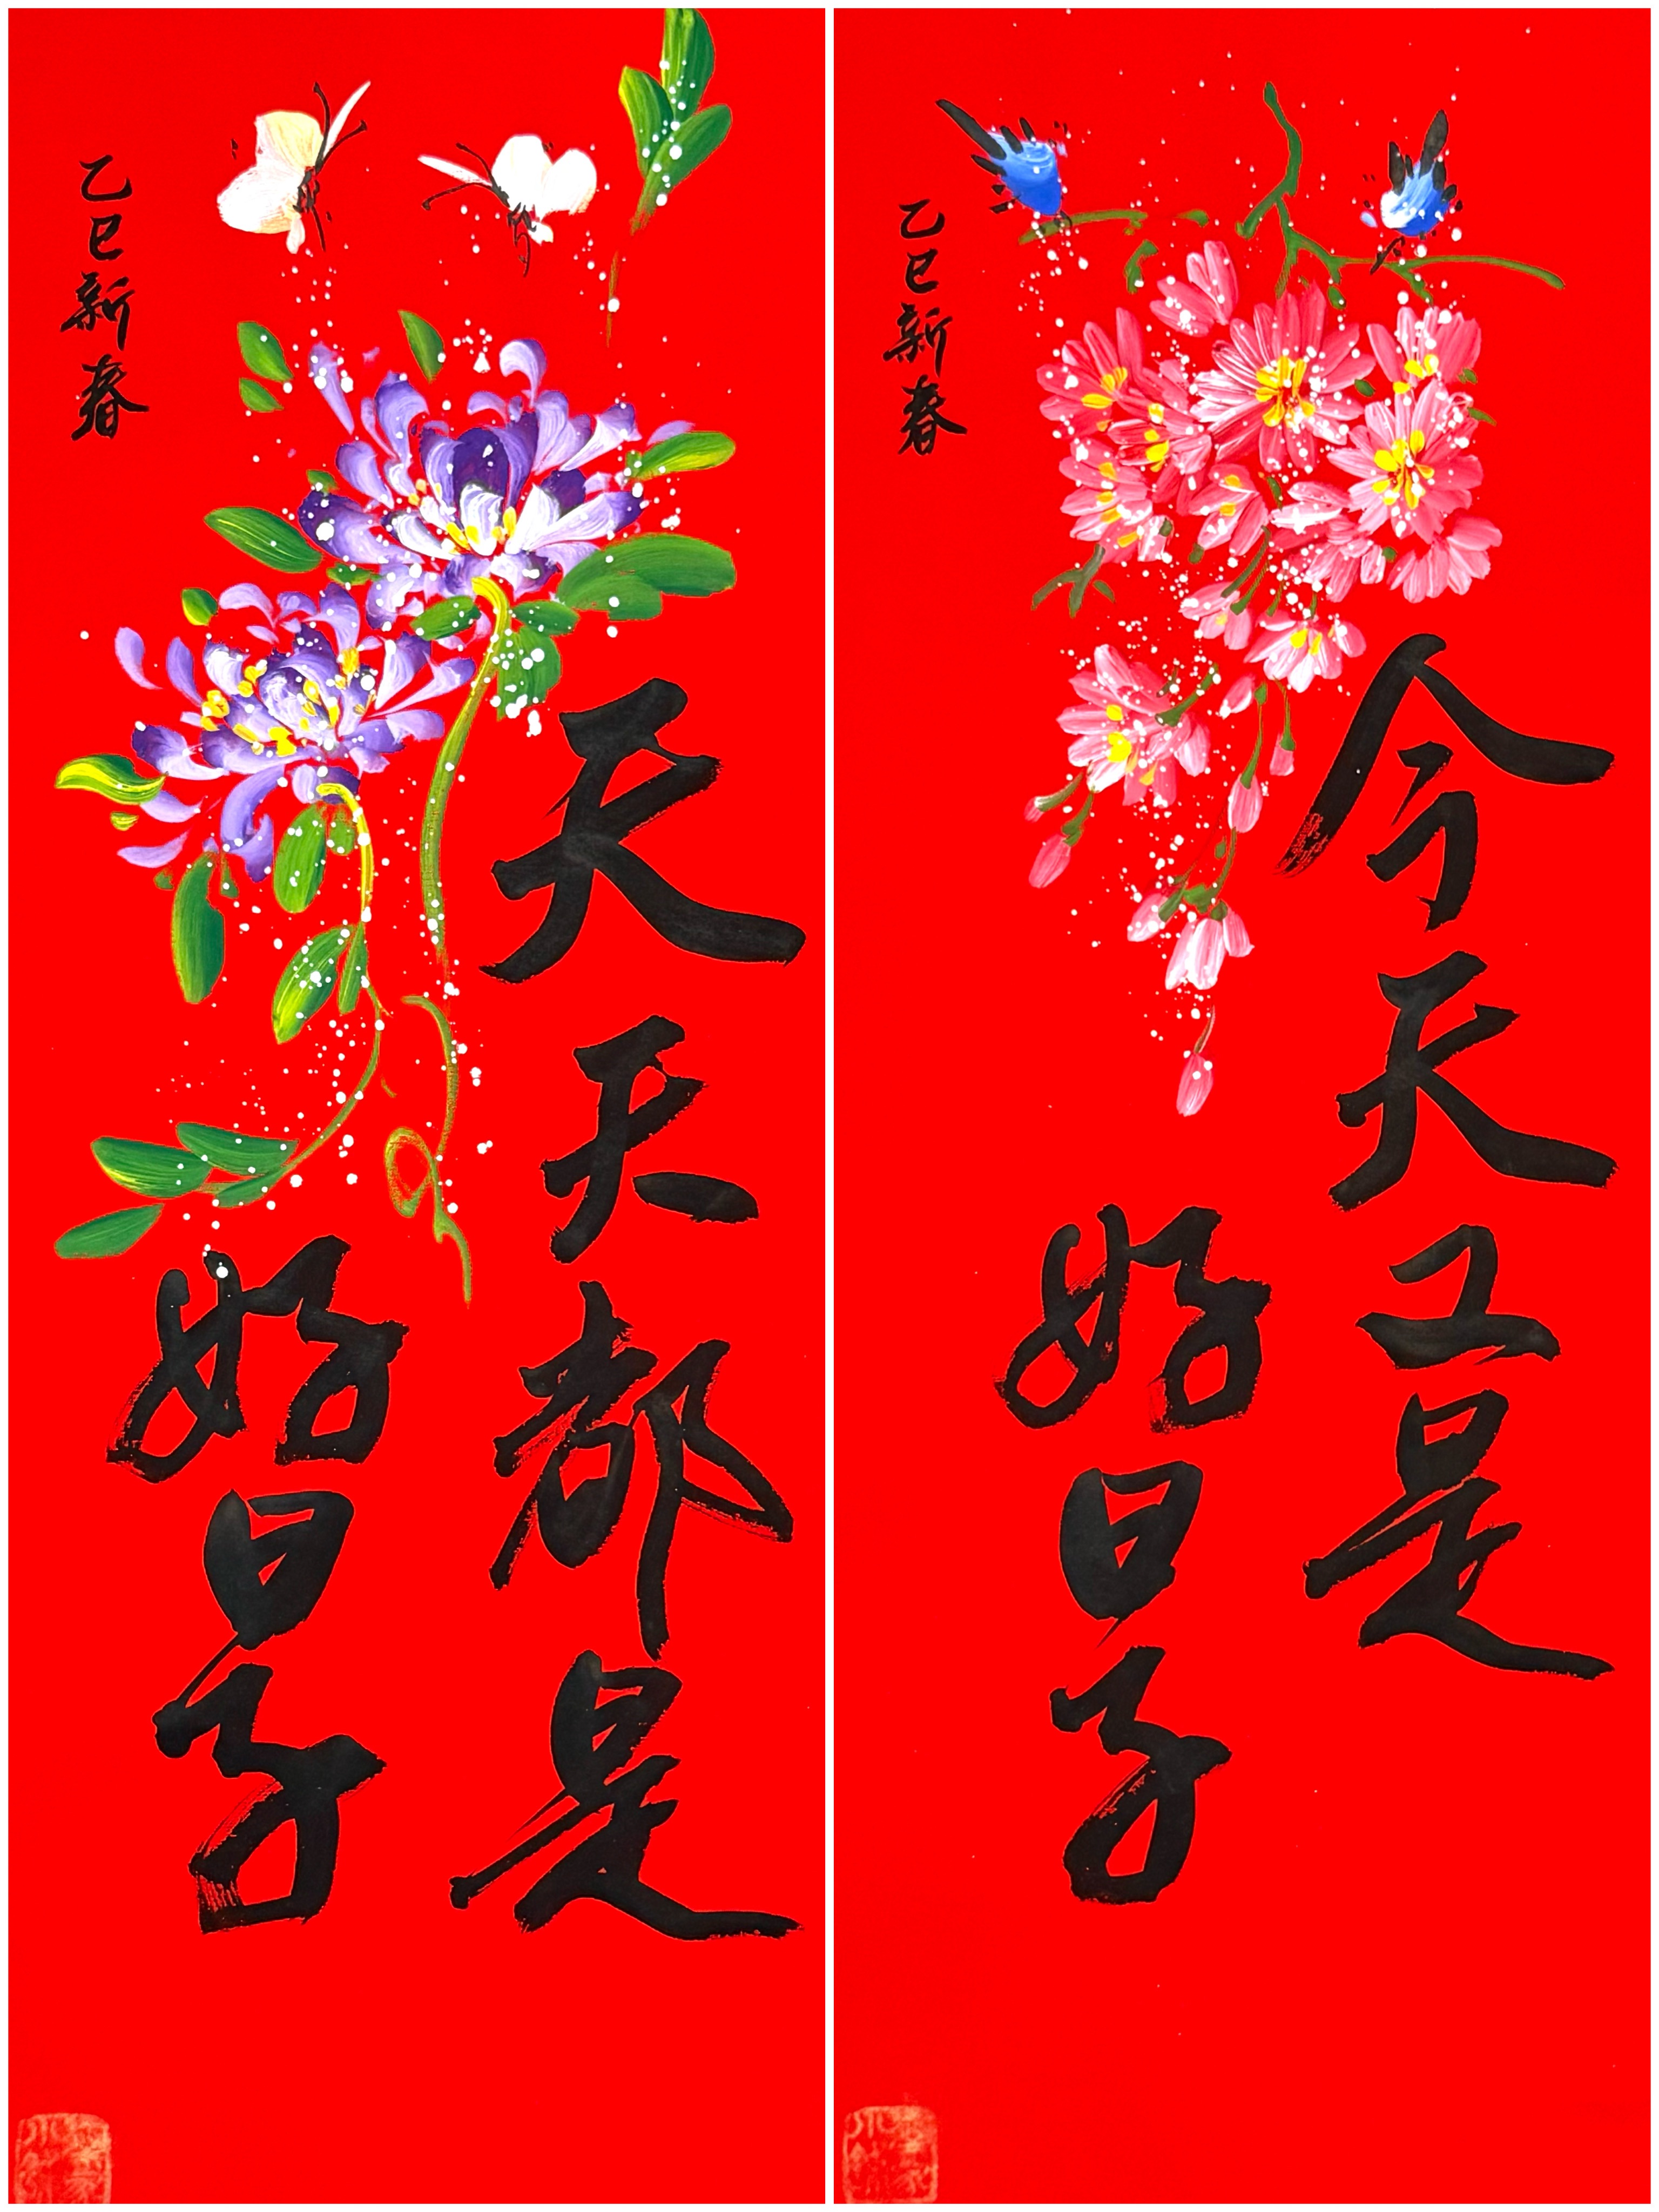 今天又是
好日子
乙巳新春
天天都是
好日子
乙巳新春